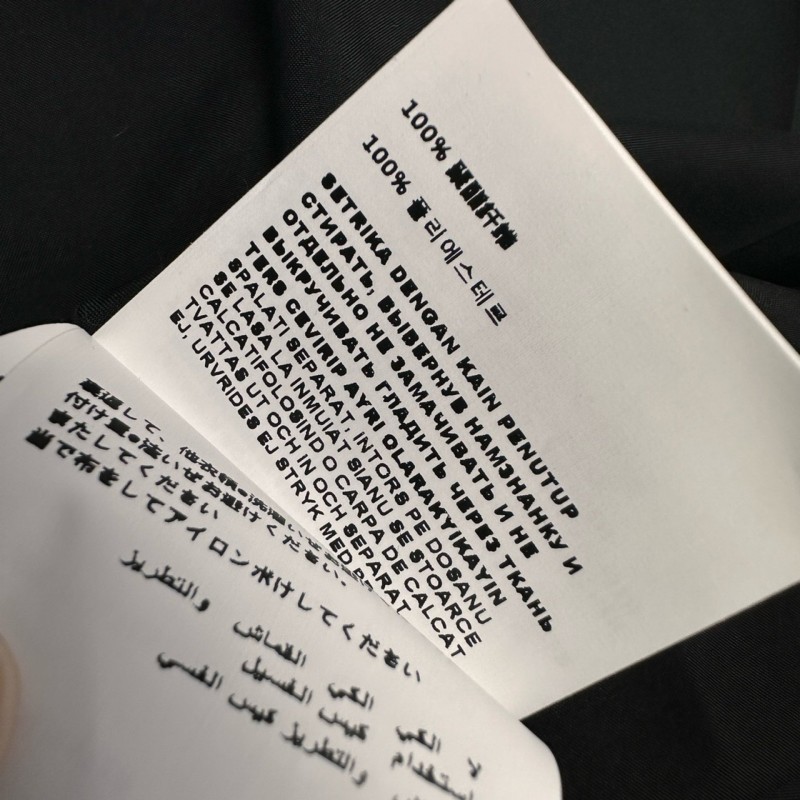 100% 聚酯纤维
100% 폴리에스테르
SETRIKA DENGAN KAIN PENUTUP
СТИРАТЬ, ВЫВЕРНУВ НАМЗНАНКУ И
ОТДЕЛЬНО НЕ ЗАМАЧИВАТЬ И НЕ
ВЫКРУЧИВАТЬ ГЛАДИТЬ ЧЕРЕЗ ТКАНЬ
TERS CEVIRIP AYRI OLARAKYIKAYIN
SPALATI SEPARAT, INTORS PE DOSANU
SE LASA LA INMUIAT SIANU SE STOARCE
CALCATIFOLOSIND O CARPA DE CALCAT
TVATTAS UT OCH IN OCH SEPARAT
EJ, URVRIDES EJ STRYK MED
返して、他衣類・洗濯
付け置・洗いぜお避けください、
きたしてください
当で布をしてアイロン水けしてくだちい
لا الكي الكي القماش والتطريز
استخدام كيس الغسيل
والتطريز كيس الغسي